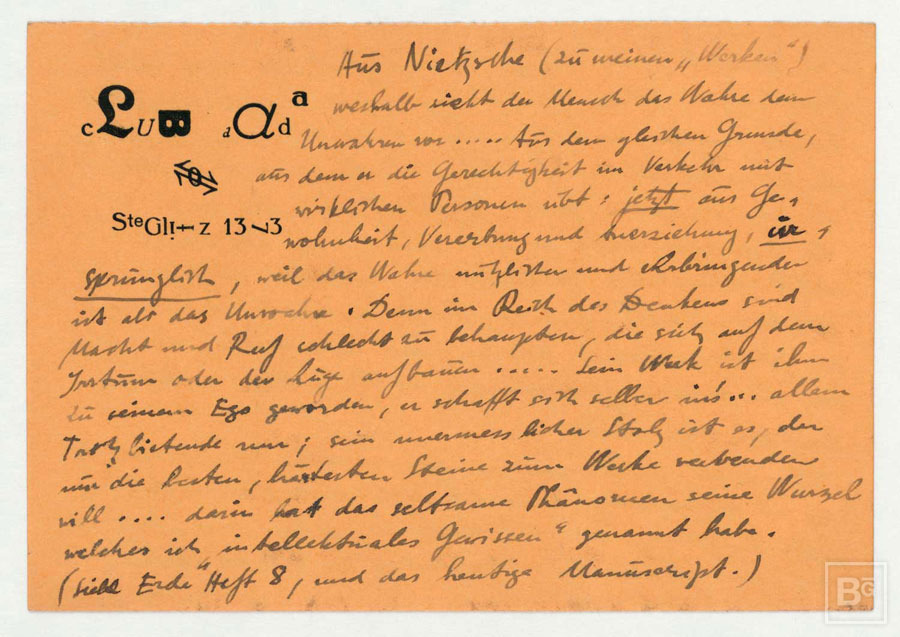 cLUB dada
1918
SteGlitz 1373
Aus Nietzsche (zu meinen „Werken“)
weshalb zieht der Mensch das Wahre dem
Unwahren vor ..... Aus dem gleichen Grunde,
aus dem er die Gerechtigkeit im Verkehr mit
wirklichen Personen übt: jetzt aus Ge-
wohnheit, Vererbung und Anerziehung, ur-
sprünglich, weil das Wahre nützlicher und ehrbringender
ist als das Unwahre. Denn im Reich des Denkens sind
Macht und Ruf schlecht zu behaupten, die sich auf dem
Irrtum oder der Lüge aufbauen ..... Sein Werk ist ihm
zu seinem Ego geworden, er schafft sich selber ins ... allem
Trotz bietende um; sein unermesslicher Stolz ist es, der
nur die besten, härtesten Steine zum Werke verwenden
will .... darin hat das seltsame Phänomen seine Wurzel
welches ich „intellektuales Gewissen“ genannt habe.
(siehe „Erde“ Heft 8, und das heutige Manuscript.)
BG